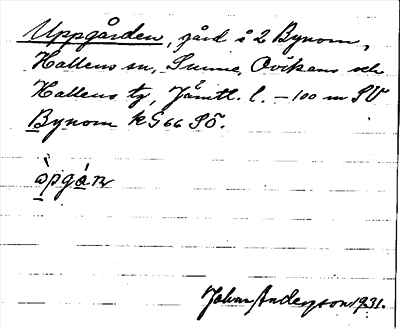 Uppgården, gård å 2 Bynom,
Hallens sn, Sunne, Ovikens och
Hallens tg, Jämtl. l. – 100 m SV
Bynom k G 66 SÖ.
Johan Anderson 1931.